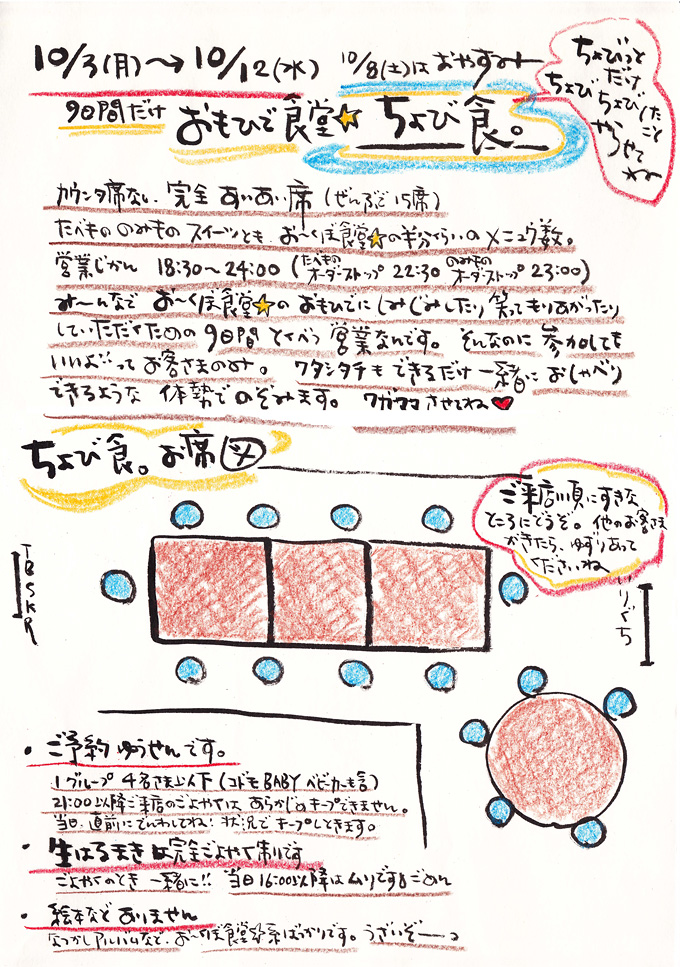 10/3(月)→10/12(水) 10/8(土)はおやすみー
ちょびっと
だけ、
ちょび ちょびしたこと
やらせて
ねー
9日間だけ おもひで食堂★ ちょび食。
カウンタ席ない、完全 あいあい席 (ぜんぶで15席)
たべもの のみもの スイーツとも、お〜くぼ食堂★の半分くらいのメニュウ数。
営業じかん 18:30〜24:00 (たべものオーダーストップ 22:30 のみものオーダーストップ 23:00)
み〜んなで お〜くぼ食堂★の おもひでに しみじみしたり 笑ってもりあがったり
していただくための 9日間 とくべつ 営業なんです。そんなのに 参加しても
いいよ!!って お客さまのみ。ワタシタチも できるだけ 一緒に おしゃべり
できるような 体勢で のぞみます。ワガママさせてね♥
ちょび食。お席図
ご来店順にすきな
ところにどうぞ。他のお客さま
がきたら、ゆずりあって
くださいね
いりぐち
・ご予約 ゆうせんです。
1グループ 4名さま以下 (コドモ BABY ベビカーも含)
21:00以降ご来店のごよやくは、あらかじめキープできません。
当日 直前に でんわしてね! 状況で キープしときます。
・生はるまきは完全ごよやく制です
ごよやくのとき 一緒に!! 当日16:00以降はムリです ごめん
・絵本など ありません
なつかしアルバムなど、お〜くぼ食堂系ばっかりです。うざいぞーっ